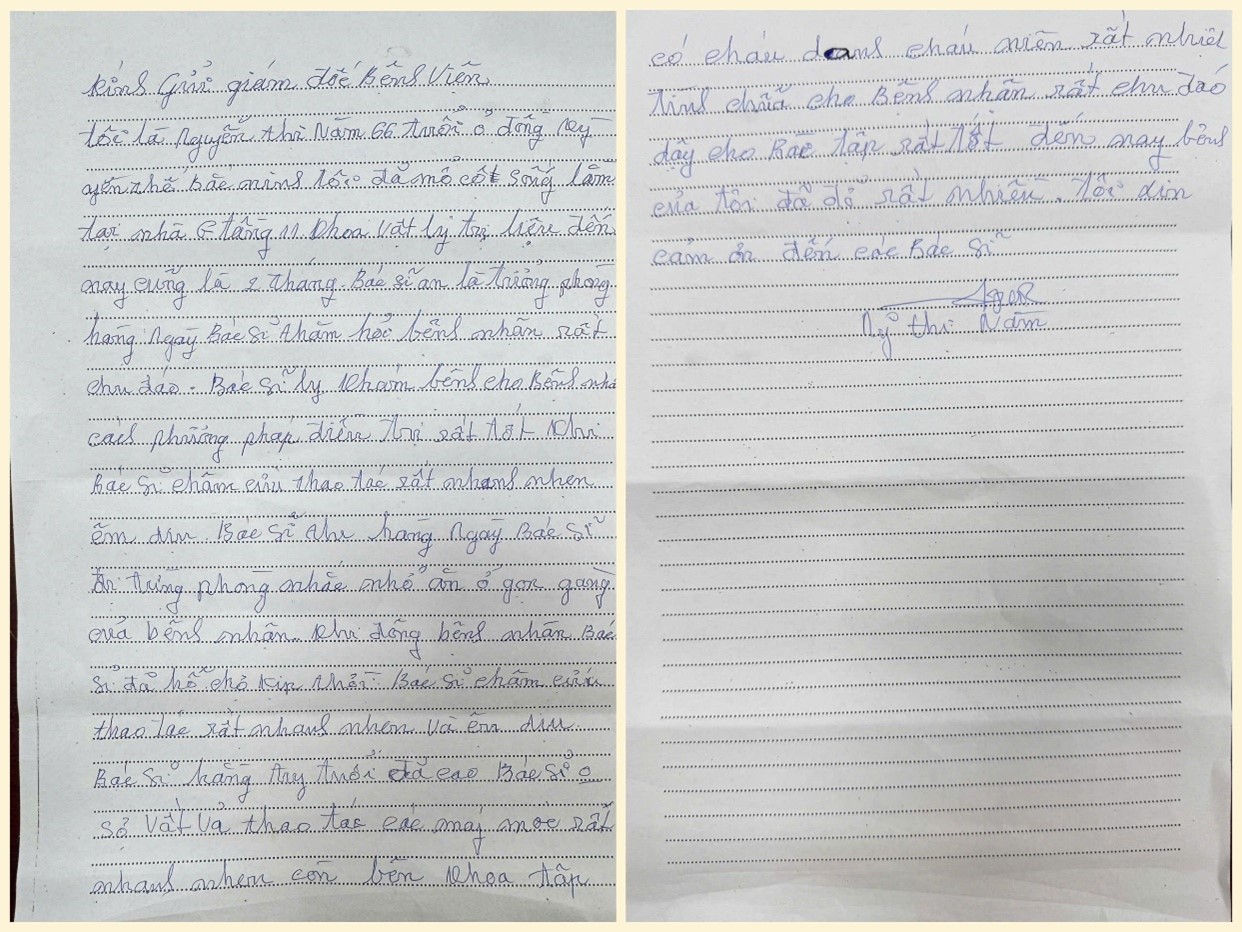 Kính Gửi giám đốc Bệnh Viện
tôi là Nguyễn thị Năm 66 tuổi ở đồng Kỳ
yên thế Bắc ninh tôi đã mổ cột sống nằm
tại nhà G tầng 11 khoa vật lý trị liệu đến
nay cũng là 2 tháng. Bác sĩ an là trưởng phong
hang Ngaỳ Bác sĩ thăm hỏi bệnh nhân rất
chu đáo - Bác sĩ ly Khám bệnh cho Bệnh nhâ
cách phương pháp điều trị rất tốt Khi
Bác sĩ châm cứu thao tác rất nhanh nhẹn
êm dịu. Bác sĩ thu hang Ngaỳ Bác sĩ
đi từng phong nhắc nhở ăn ở gọn gang
cuả bệnh nhân. Khi đông bệnh nhân Bác
sĩ đã hỗ chợ kịp thời - Bác sĩ châm cứu
thao tác rất nhanh nhẹn và êm dịu
Bác sĩ hằng tuy tuổi đã cao Bác sĩ o
sợ vất vả thao tác các máy móc rất
nhanh nhẹn còn bên Khoa tập
có cháu doanh cháu niên rất nhiệt
tình chữa cho Bệnh nhân rất chu đaó
dậy cho Bác tập rất tốt đến nay bệnh
của tôi đã đỡ rất nhiều. Tôi xin
cảm ơn đến các Bác sĩ
Ng thị Năm